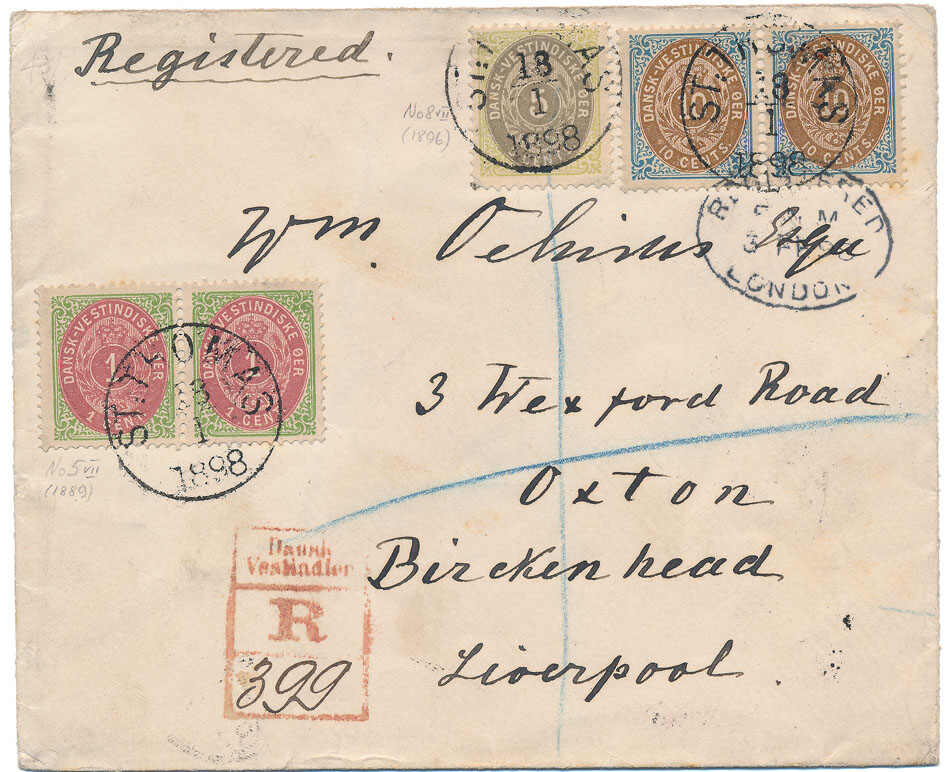 Registered.
No 8 VII
(1896)
DANSK-VESTINDISKE ØER
ST. THOMAS
18
1
1898
DANSK-VESTINDISKE ØER
10
10 CENTS
DANSK-VESTINDISKE ØER
10
10 CENTS
ST. THOMAS
18
1
1898
REGISTERED
LONDON
Wm. Esqu
3 Wexford Road
Oxton
Birckenhead
Liverpool
DANSK-VESTINDISKE ØER
1
1 CENT
DANSK-VESTINDISKE ØER
1
1 CENT
ST. THOMAS
18
1
1898
No 5 VII
(1889)
Dansk
Vestindien
R
399